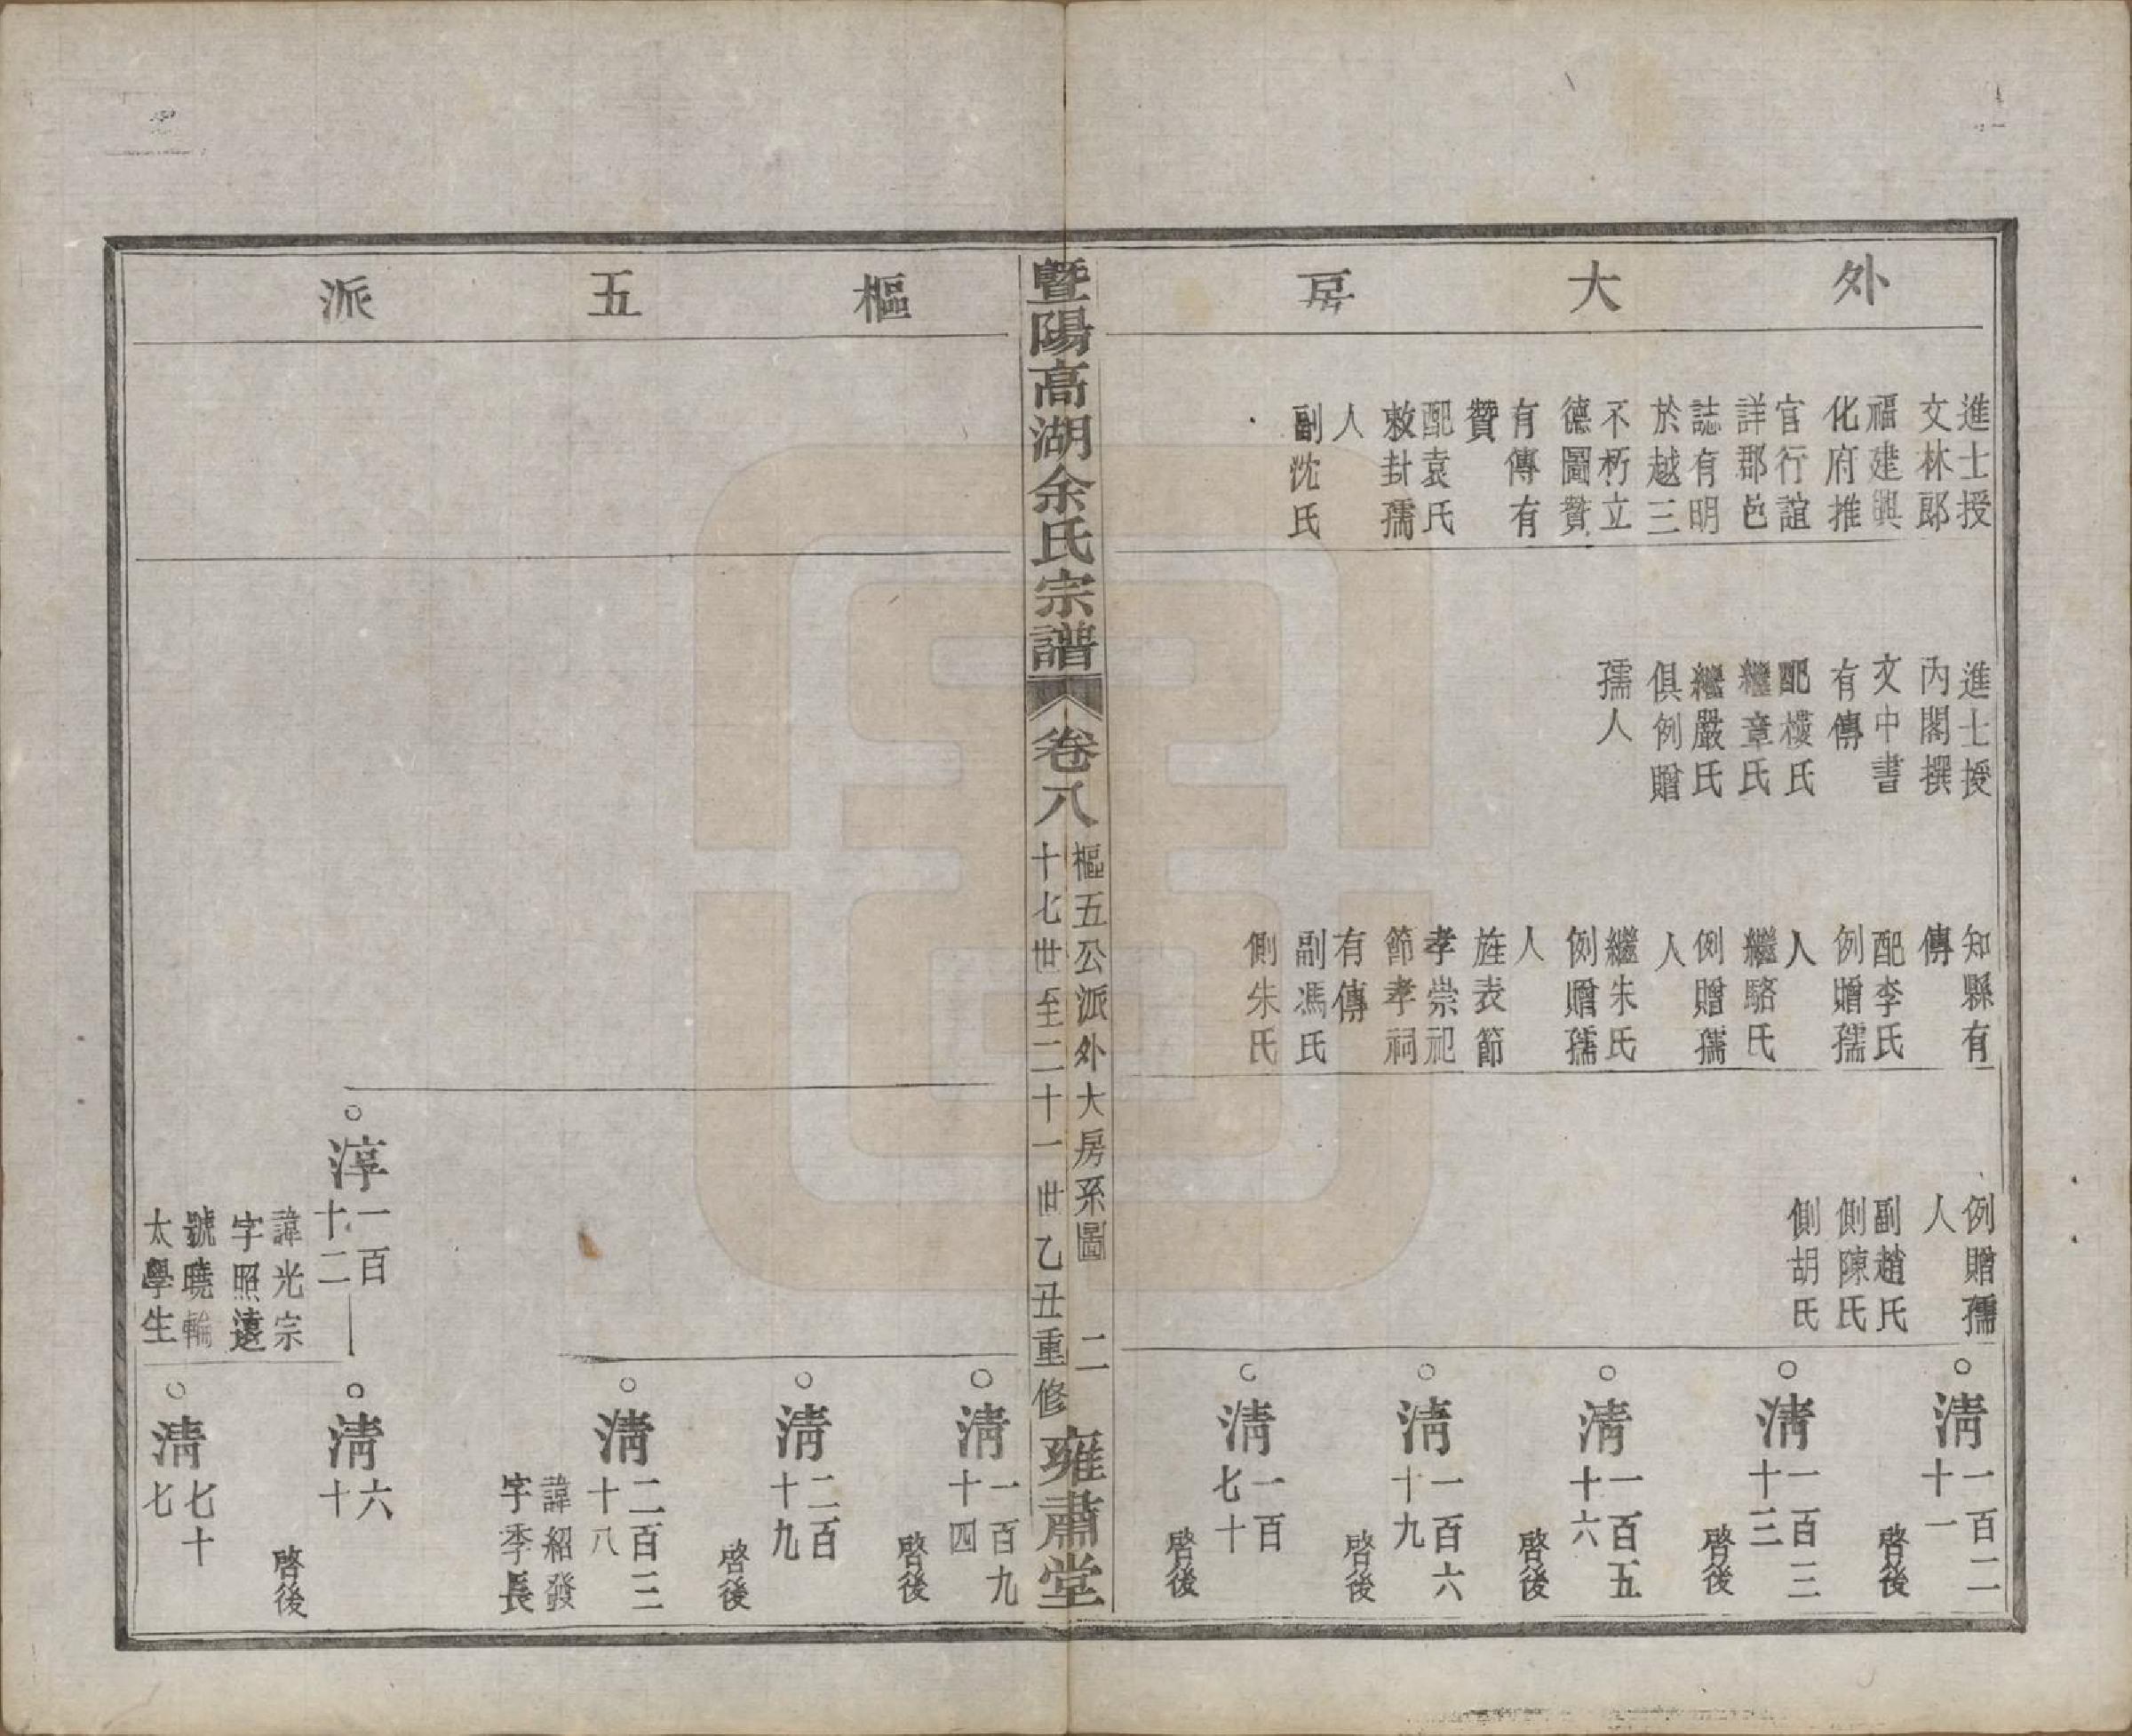 外大房
進士授
文林郎
福建興
化府推
官行誼
詳郡邑
誌有明
於越三
不朽立
德圖贊
有傳有
贊
配袁氏
敕封孺
人
副沈氏
進士授
內閣撰
文中書
有傳
配樓氏
繼章氏
繼嚴氏
俱例贈
孺人
知縣有
傳
配李氏
例贈孺
人
繼駱氏
例贈孺
人
繼朱氏
例贈孺
人
旌表節
孝崇祀
節孝祠
有傳
副馮氏
側朱氏
例贈孺
人
副趙氏
側陳氏
側胡氏
○淸一百二
十一
啓後
○淸一百三
十三
啓後
○淸一百五
十六
啓後
○淸一百六
十九
啓後
○淸一百
七十
啓後
暨陽高湖余氏宗譜
卷八
樞五公派外大房系圖 二
十七世至二十一世乙丑重修
雍肅堂
樞五派
○淸一百九
十四
啓後
○淸二百
十九
啓後
○淸二百三
十八
諱紹發
字季長
○淳一百
十二
諱光宗
字照遠
號曉輪
太學生
○淸六
十
啓後
○淸七十
七